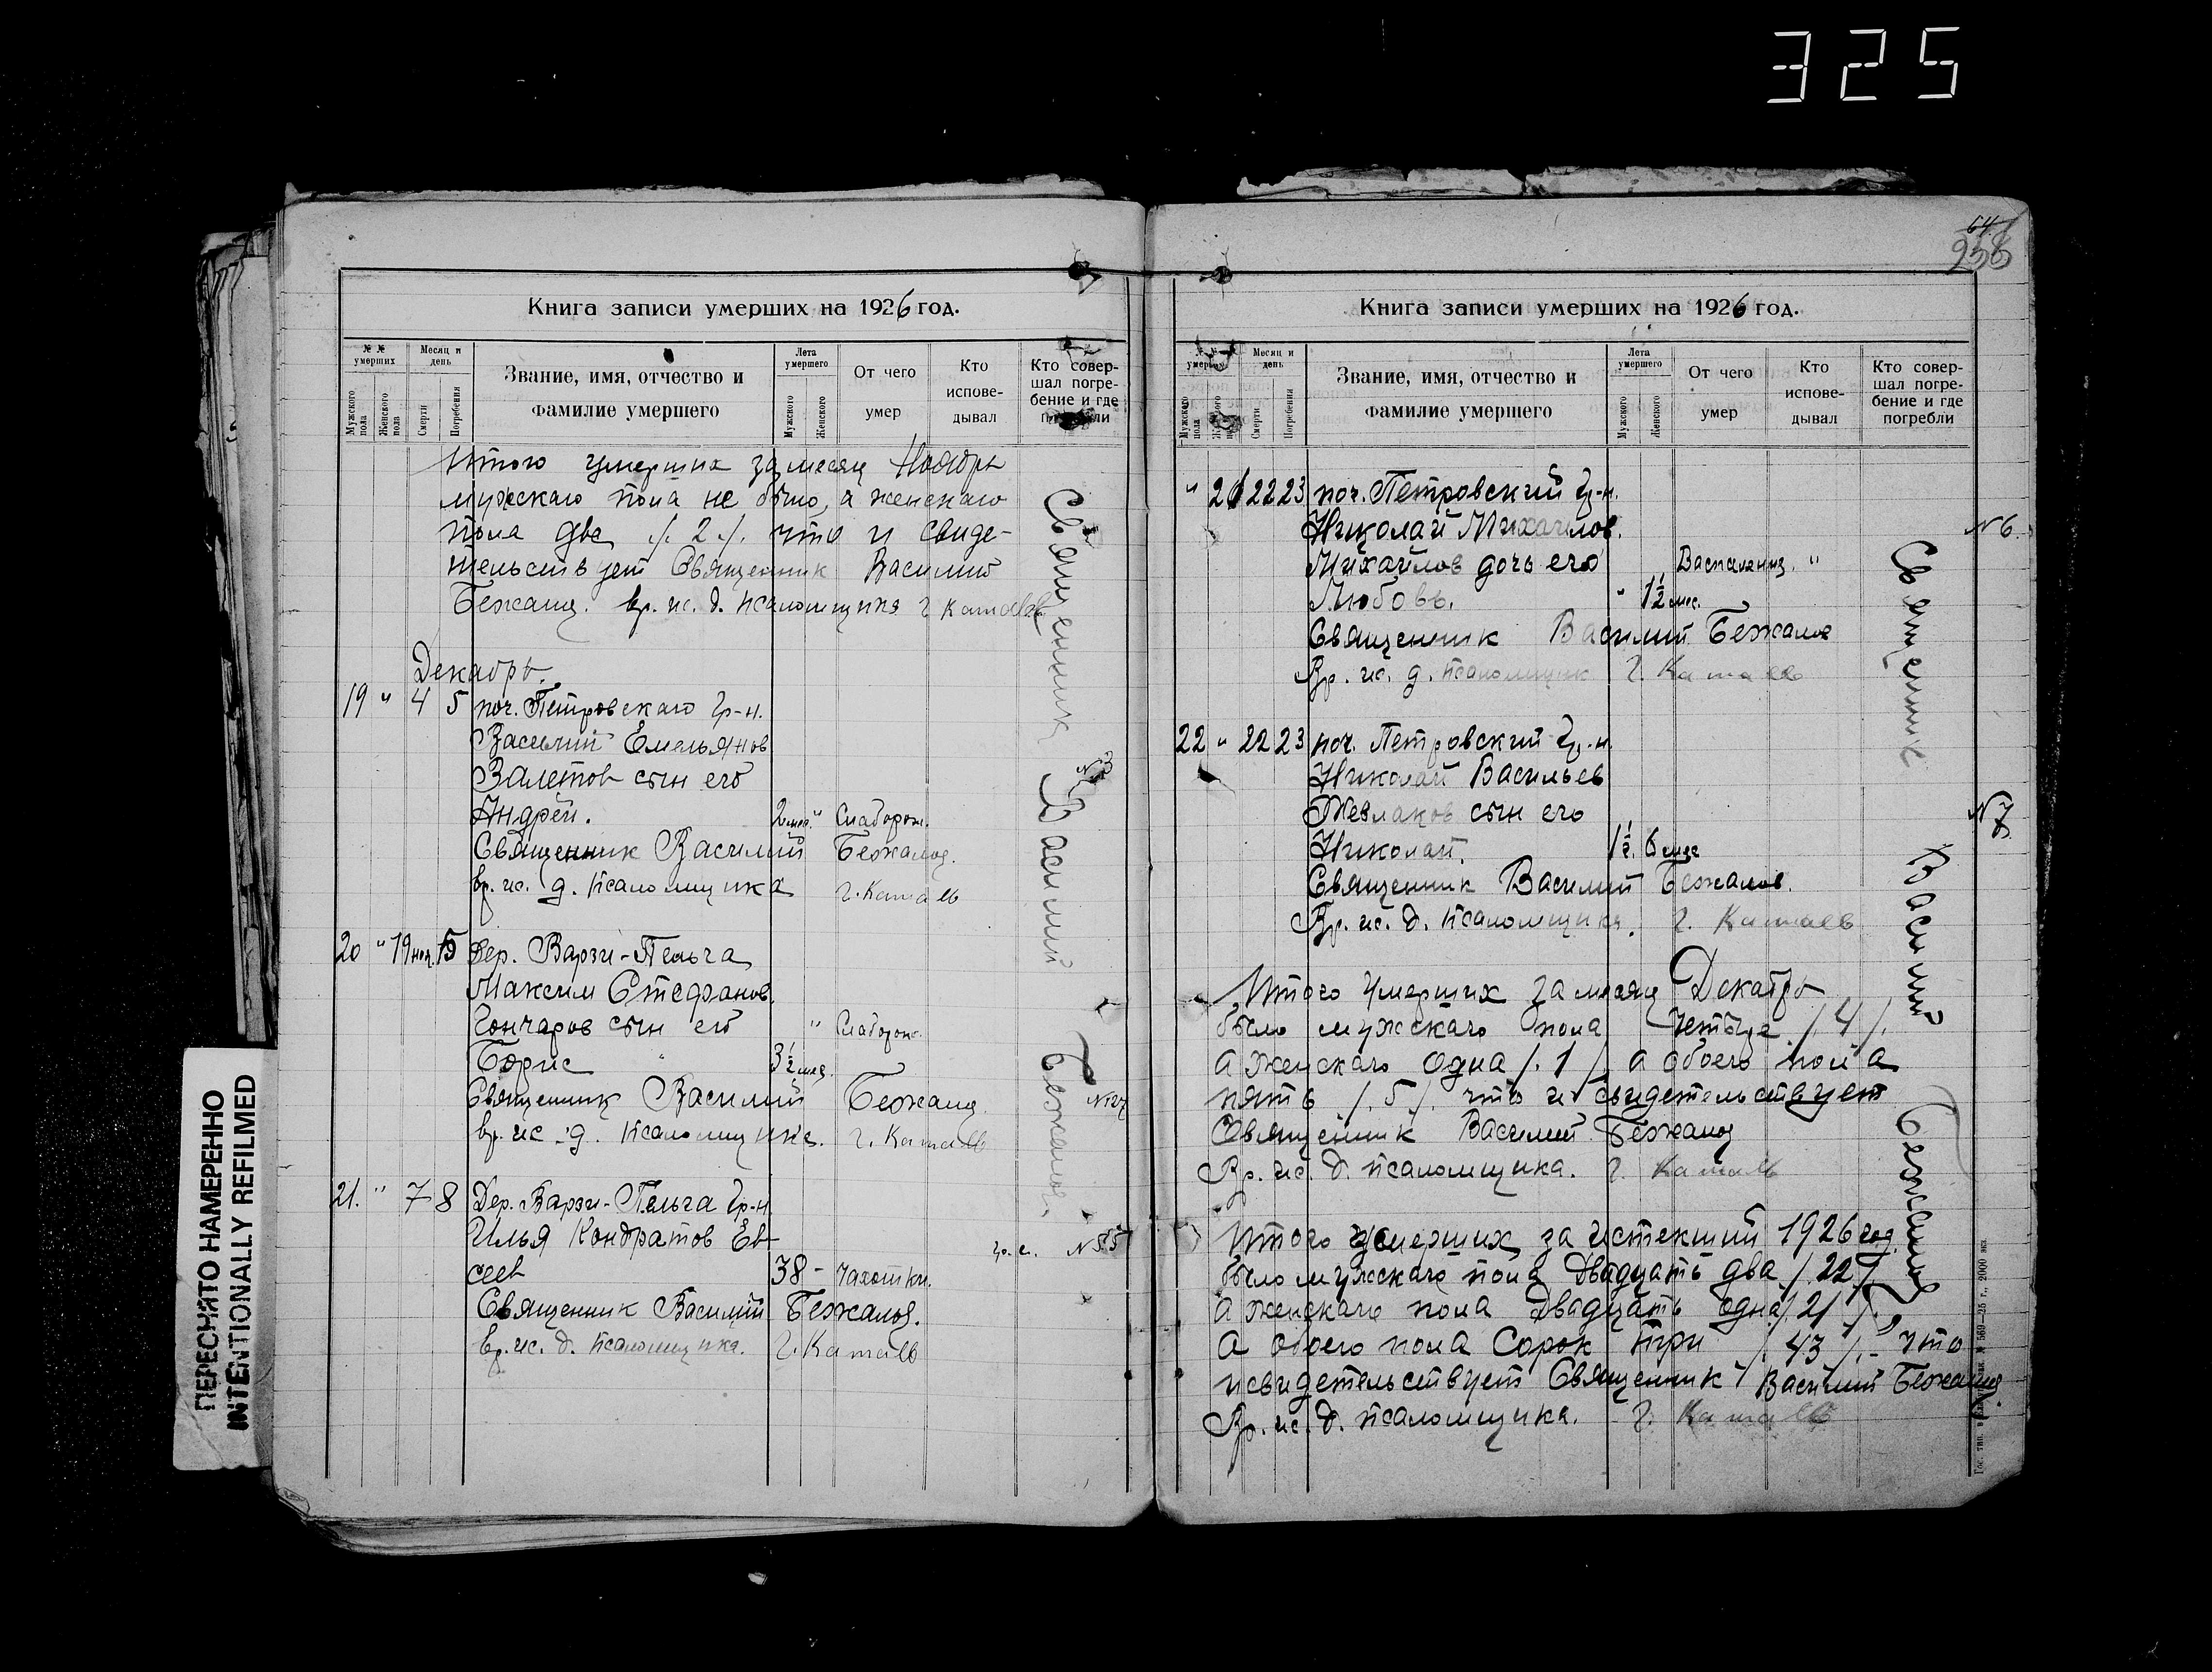 325
Книга записи умерших на 1926 год.
№ № умерших
Мужского пола
Женского пола
Месяц и день
Смерти
Погребения
Звание, имя, отчество и фамилие умершего
Лета умершего
Мужского
Женского
От чего умер
Кто исповедывал
Кто совершал погребение и где погребли
Итого умерших за месяц Ноябрь
мужскаго пола не было, а женскаго
пола два /. 2 /. что и свиде-
тельствует Священник Василий
Бежанов. вр. ис. д. псаломщика Г. Катаев
Декабрь.
19 " 4 5 поч. Петровскаго Гр-н.
Василий Емельянов
Залетов сын его
Андрей. 2 мес. " Слаборож.
Священник Василий Бежанов.
вр. ис. д. псаломщика Г. Катаев
№ 3
20 " 19 ноя. 15 Дер. Варзи-Пельга
Максим Стефанов
Гончаров сын его " Слаборож.
Борис 3 1/2 мес.
Священник Василий Бежанов
вр. ис. д. псаломщика. Г. Катаев
21. " 7 8 Дер. Варзи-Пельга Гр-н
Илья Кондратов Ев-
сеев 38 - чахотки.
№ 55
Священник Василий Бежанов.
Вр. ис. д. псаломщика. Г. Катаев
Священник Василий Бежанов.
64
Книга записи умерших на 1926 год.
№ № умерших
Мужского пола
Женского пола
Месяц и день
Смерти
Погребения
Звание, имя, отчество и фамилие умершего
Лета умершего
Мужского
Женского
От чего умер
Кто исповедывал
Кто совершал погребение и где погребли
" 21 22 23 поч. Петровский Гр-н.
Николай Михайлов.
Михайлов дочь его Васпаления. "
Любовь. " 1 1/2 мес.
Священник Василий Бежанов
Вр. ис. д. псаломщик Г. Катаев
№ 6.
22 " 22 23 поч. Петровский Гр-н.
Николай Васильев
Жевлаков сын его
Николай. 1 1/2. 6 мес
Священник Василий Бежанов.
Вр. ис. д. псаломщика. Г. Катаев
№ 7
Итого умерших за месяц Декабрь
было мужскаго пола четыре /. 4 /.
а женскаго одна /. 1 /. а обоего пола
пять /. 5 /. что и свидетельствует
Священник Василий Бежанов
Вр. ис. д. псаломщика. Г. Катаев
Итого умерших за истекший 1926 год.
было мужскаго пола двадцать два /. 22 /.
а женскаго пола двадцать одна /. 21 /.
а обоего пола сорок три /. 43 /. - что
и свидетельствует Священник Василий Бежанов
Вр. ис. д. псаломщика. Г. Катаев
Священник Василий Бежанов
ПЕРЕСНЯТО НАМЕРЕННО
INTENTIONALLY REFILMED